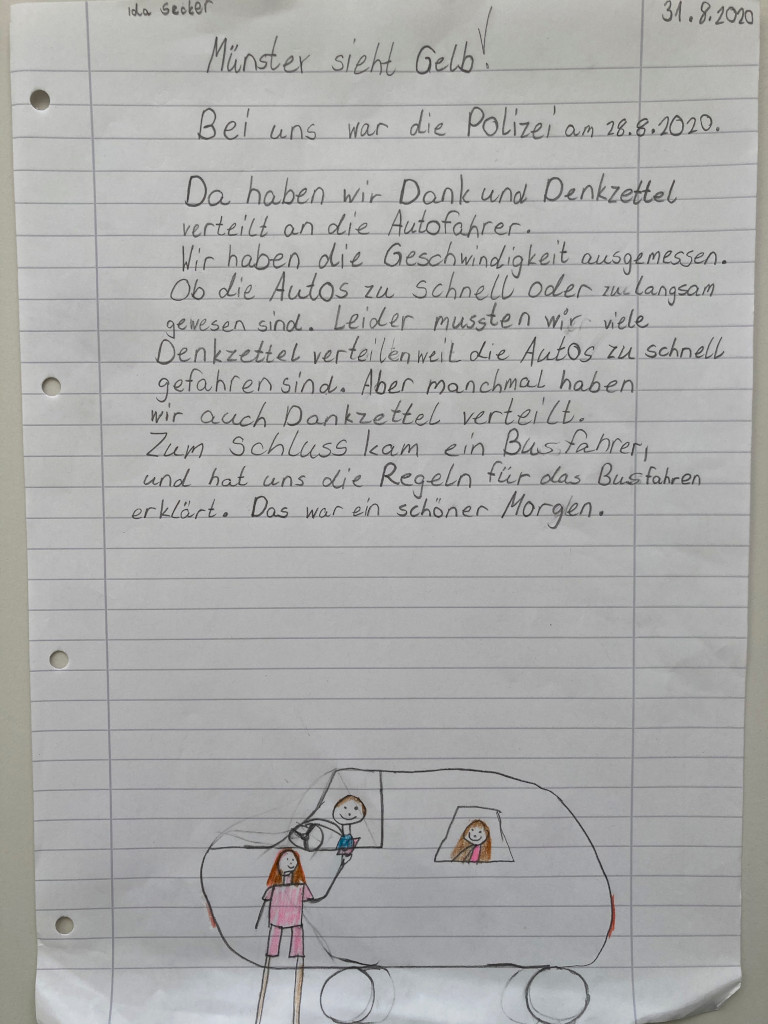 Ida Secker
31.8.2020
Münster sieht Gelb!
Bei uns war die Polizei am 28.8.2020.
Da haben wir Dank und Denkzettel
verteilt an die Autofahrer.
Wir haben die Geschwindigkeit ausgemessen.
Ob die Autos zu schnell oder zu langsam
gewesen sind. Leider mussten wir viele
Denkzettel verteilen weil die Autos zu schnell
gefahren sind. Aber manchmal haben
wir auch Dankzettel verteilt.
Zum Schluss kam ein Busfahrer,
und hat uns die Regeln für das Busfahren
erklärt. Das war ein schöner Morgen.